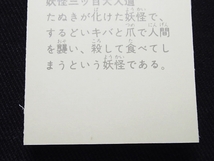 妖怪三ツ目大入道
たぬきが化けた妖怪で、
するどいキバと爪で人間
を襲い、殺して食べてし
まうという妖怪である。